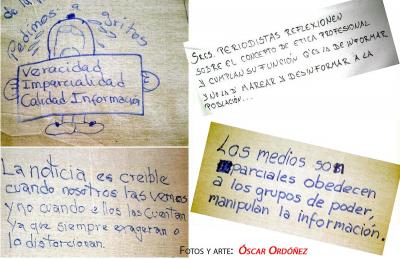 Pedimos: a gritos
Veracidad
Imparcialidad
Calidad Información
SRES. PERIODISTAS REFLEXIONEN
SOBRE EL CONCEPTO DE ETICA PROFESIONAL
Y CUMPLAN SU FUNCIÓN Q'ES LA DE INFORMAR
Y NO LA D' MAREAR Y DESINFORMAR A LA
POBLACIÓN...
La noticia es creible
cuando nosotros las vemos
y no cuando ellos las cuentan
ya que siempre exageran o
lo distorcionan.
Los medios son
parciales obedecen
a los grupos de poder,
manipulan la información.
FOTOS Y ARTE: ÓSCAR ORDÓÑEZ